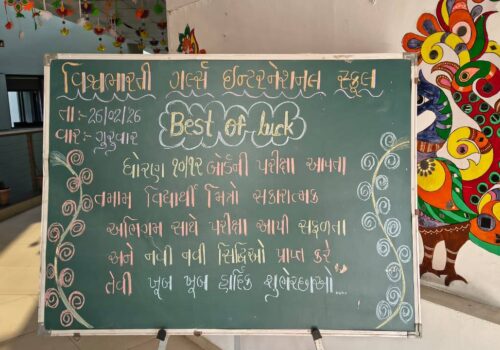 વિશ્વભારતી ગર્લ્સ ઈન્ટરનેશનલ સ્કૂલ
તા:- 26/02/26
Best of luck
વાર:- ગુરુવાર
ધોરણ ૧૦/૧૨ બોર્ડની પરીક્ષા આપતા
તમામ વિદ્યાર્થી મિત્રો સકારાત્મક
અભિગમ સાથે પરીક્ષા આપી સફળતા
અને નવી નવી સિદ્ધિઓ પ્રાપ્ત કરે
તેવી ખૂબ ખૂબ હાર્દિક શુભેચ્છાઓ"...